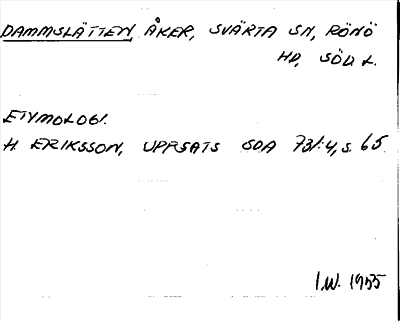 DAMMSLÄTTEN, ÅKER, SVÄRTA SN, RÖNÖ
HD, SÖD L.
ETYMOLOGI.
H. ERIKSSON, UPPSATS SOA 731:4, s. 65.
I.W. 1955